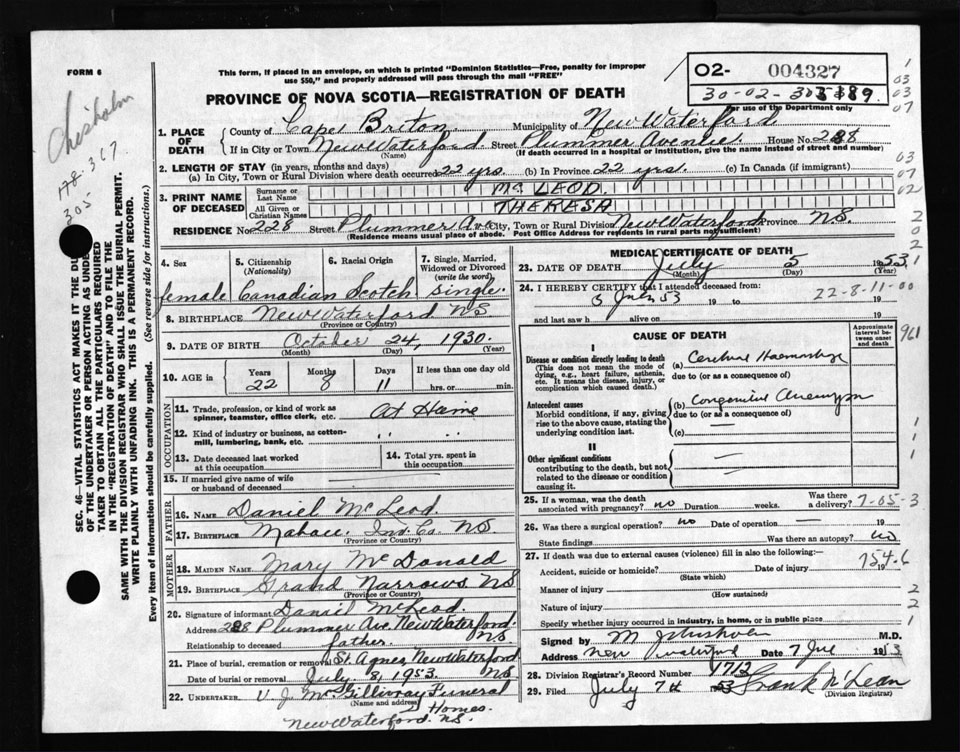 FORM 6
This form, if placed in an envelope, on which is printed "Dominion Statistics—Free, penalty for improper
use $50," and properly addressed will pass through the mail "FREE"
O2- 004327
30-02-
For use of the Department only
PROVINCE OF NOVA SCOTIA—REGISTRATION OF DEATH
Chisholm
178-367
305
SEC. 46—VITAL STATISTICS ACT MAKES IT THE DU
OF THE UNDERTAKER OR PERSON ACTING AS UNDER
TAKER TO OBTAIN ALL THE PARTICULARS REQUIRED
IN THE "REGISTRATION OF DEATH" AND TO FILE THE
SAME WITH THE DIVISION REGISTRAR WHO SHALL ISSUE THE BURIAL PERMIT.
WRITE PLAINLY WITH UNFADING INK. THIS IS A PERMANENT RECORD.
Every item of information should be carefully supplied. (See reverse side for instructions.)
1. PLACE OF DEATH
County of Cape Briton Municipality of New Waterford
If in City or Town New Waterford Street Plummer Avenue House No. 228
(Name) (If death occurred in a hospital or institution, give the name instead of street and number)
2. LENGTH OF STAY (in years, months and days)
(a) In City, Town or Rural Division where death occurred 22 yrs. (b) In Province 22 yrs. (c) In Canada (if immigrant)
3. PRINT NAME OF DECEASED
Surname or Last Name McLEOD
All Given or Christian Names THERESA
RESIDENCE No. 228 Street Plummer Ave City, Town or Rural Division New Waterford Province N.S.
(Residence means usual place of abode. Post Office Address for residents in rural parts not sufficient)
4. Sex
female
5. Citizenship
(Nationality)
Canadian
6. Racial Origin
Scotch
7. Single, Married, Widowed or Divorced
(write the word)
Single
8. BIRTHPLACE New Waterford NS
(Province or Country)
9. DATE OF BIRTH October 24, 1930.
(Month) (Day) (Year)
10. AGE in
Years Months Days If less than one day
22 8 11 hrs. or min.
OCCUPATION
11. Trade, profession, or kind of work as spinner, teamster, office clerk, etc. At Home
12. Kind of industry or business, as cotton-mill, lumbering, bank, etc. " "
13. Date deceased last worked at this occupation
14. Total yrs. spent in this occupation
15. If married give name of wife or husband of deceased
FATHER
16. NAME Daniel McLeod
17. BIRTHPLACE Mabou Inv. Co. NS
(Province or Country)
MOTHER
18. MAIDEN NAME Mary McDonald
19. BIRTHPLACE Grand Narrows NS
(Province or Country)
20. Signature of informant Daniel McLeod.
Address 228 Plummer Ave. New Waterford. NS.
Relationship to deceased father.
21. Place of burial, cremation or removal St. Agnes New Waterford NS
Date of burial or removal July. 8, 1953.
22. UNDERTAKER V. J. McGillivray Funeral Homes.
(Name and address)
New Waterford. NS.
MEDICAL CERTIFICATE OF DEATH
23. DATE OF DEATH July 5 1953
(Month) (Day) (Year)
24. I HEREBY CERTIFY that I attended deceased from:
5 July 53 19 to 19
22-8-11-00
and last saw h alive on 19
CAUSE OF DEATH
Approximate interval between onset and death
I
Disease or condition directly leading to death
(This does not mean the mode of dying, e.g., heart failure, asthenia, etc. It means the disease, injury, or complication which caused death.)
(a) Cerebral Haemorrhage
due to (or as a consequence of)
Antecedent causes
Morbid conditions, if any, giving rise to the above cause, stating the underlying condition last.
(b) Congenital Aneurysm
due to (or as a consequence of)
(c) —
II
Other significant conditions
contributing to the death, but not related to the disease or condition causing it.
25. If a woman, was the death associated with pregnancy? no Duration weeks. Was there a delivery?
7-05-3
26. Was there a surgical operation? no Date of operation — 19
State findings Was there an autopsy? no
27. If death was due to external causes (violence) fill in also the following:—
Accident, suicide or homicide? Date of injury 19
(State which)
754.6
Manner of injury
(How sustained)
Nature of injury
Specify whether injury occurred in industry, in home, or in public place
Signed by M. Chisholm M.D.
Address New Waterford Date 7 Jul 1953
28. Division Registrar's Record Number 1713
29. Filed July 7th 53 Frank McLean
(Division Registrar)
1
03
03
07
03
07
02
2
0
2
1
961
1
1
1
2
2
1